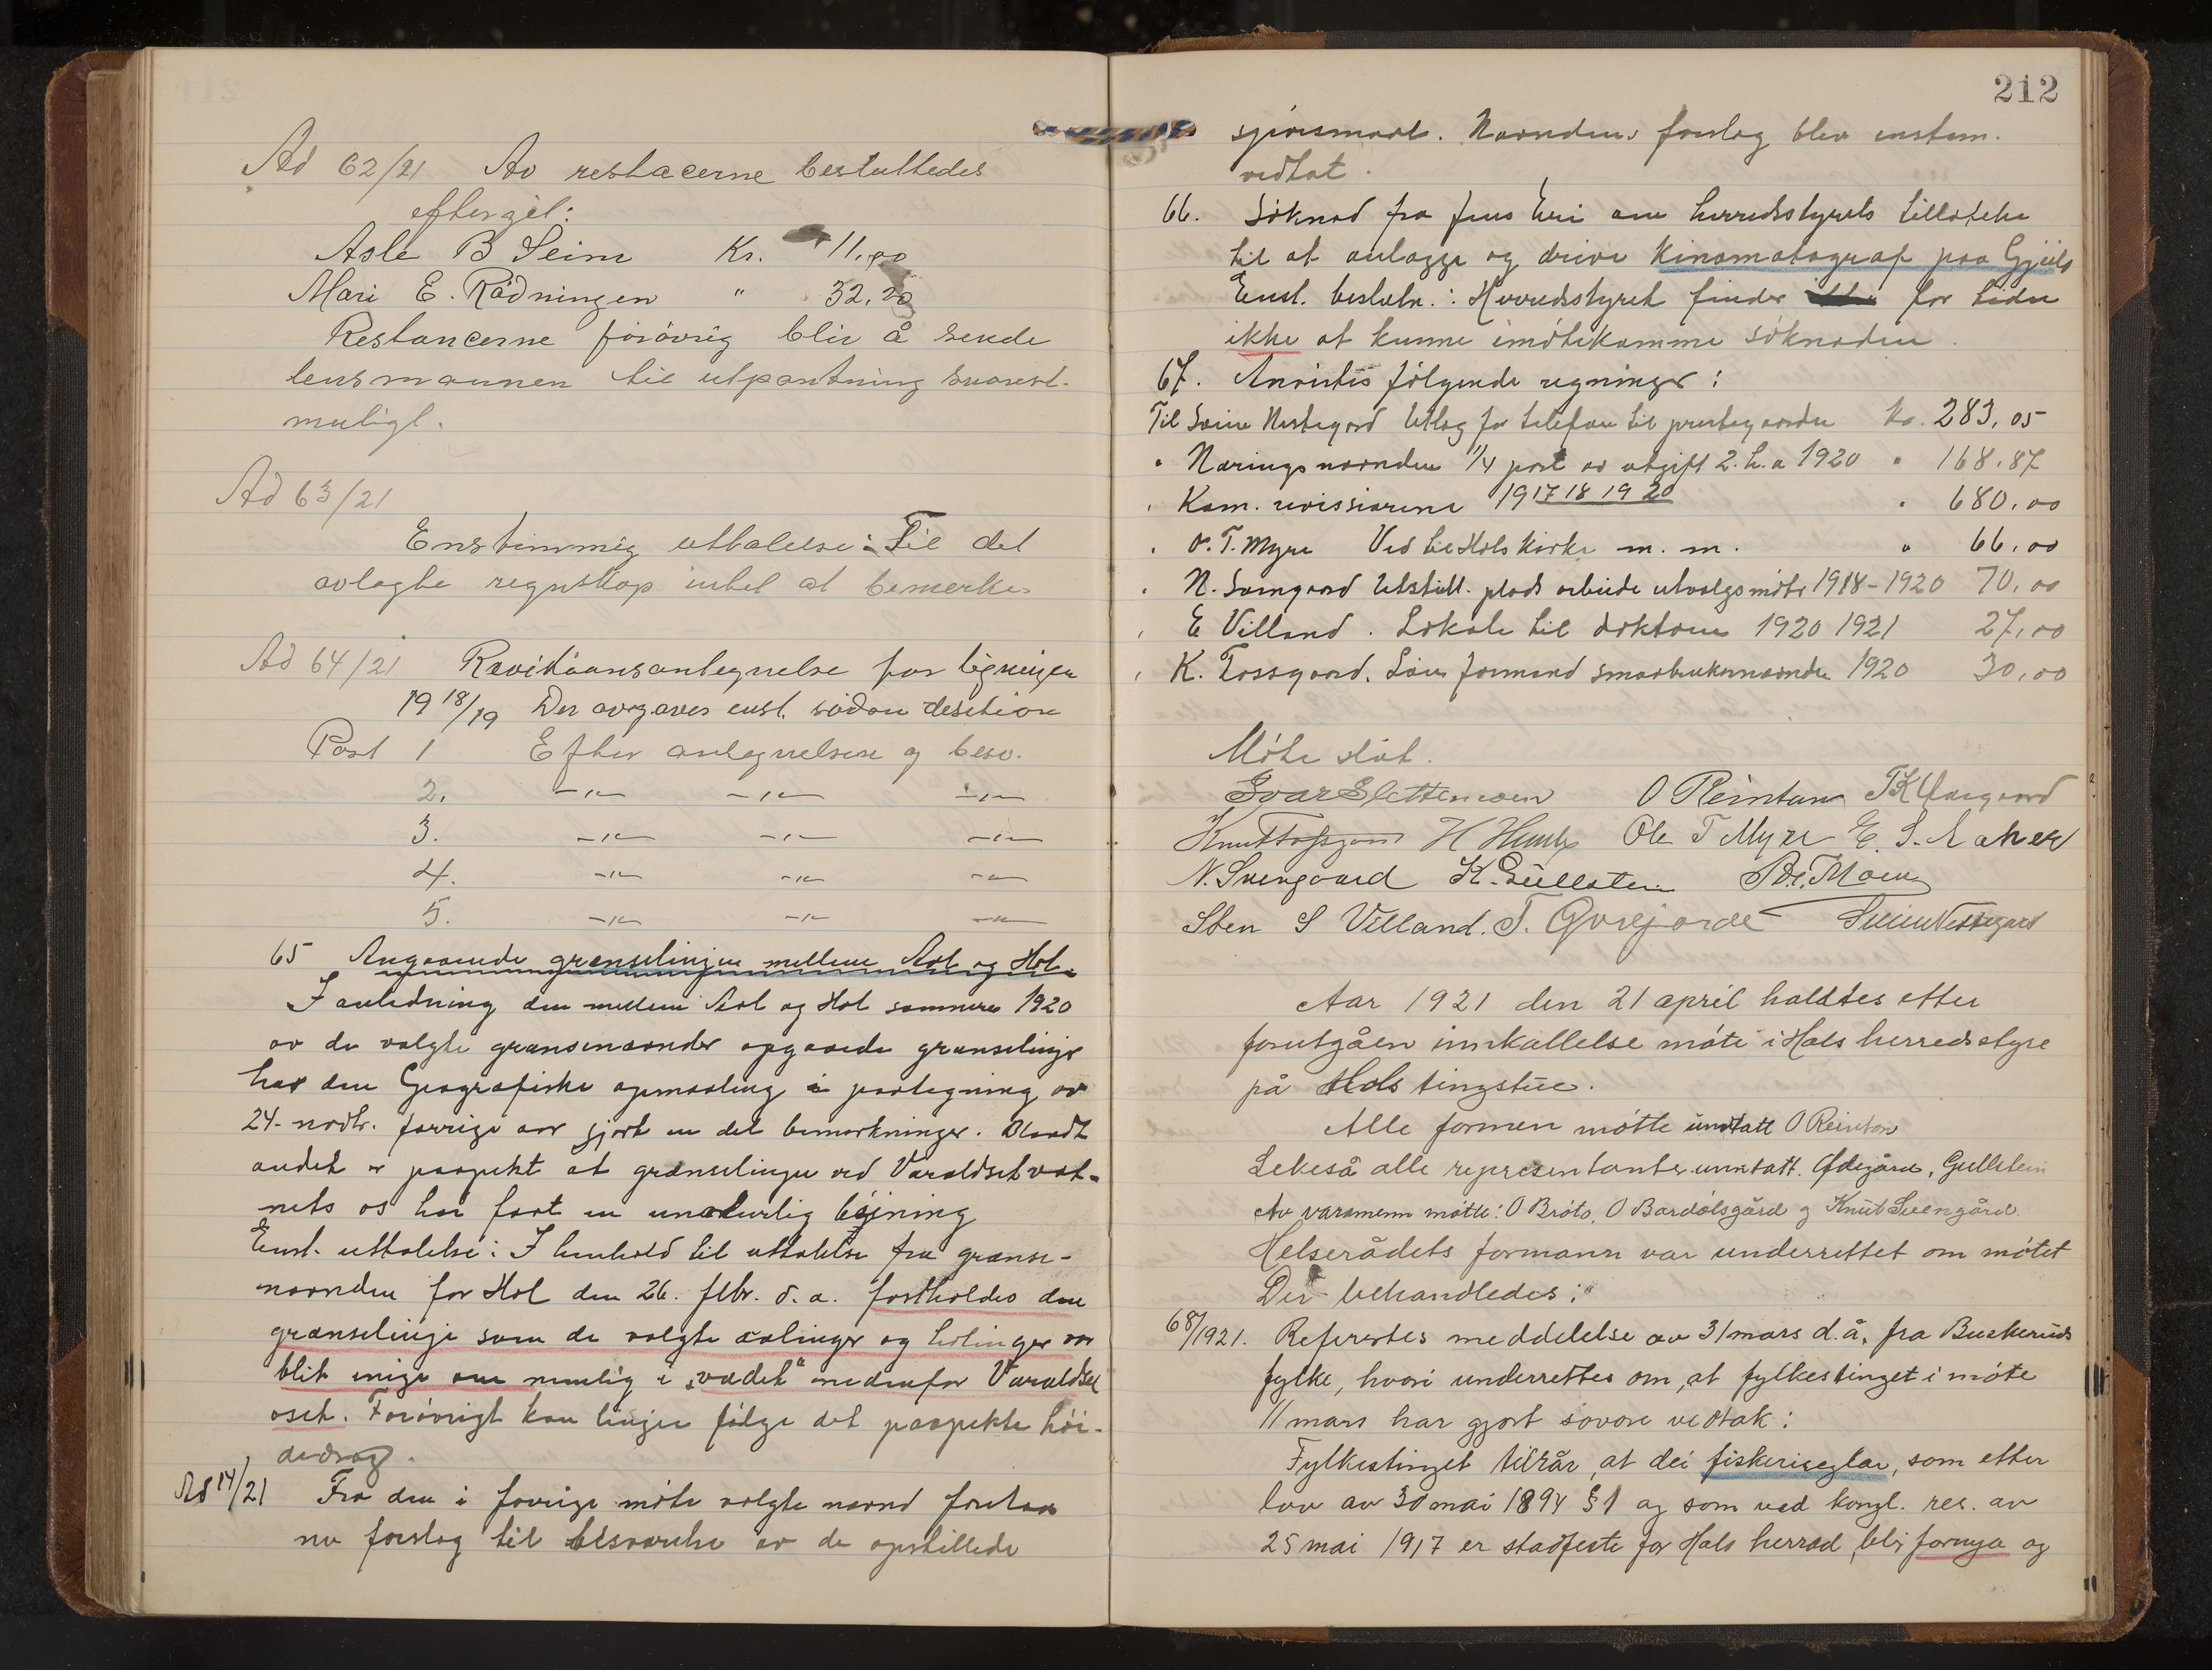 Ad 62/21 Av restacerne besluttedes
eftergit:
Asle B Seim Kr. 11,00
Mari E. Rådningen " 32,20
Restancerne forövrig blir å sende
lensmannen til utpantning snarest-
muligt.
Ad 63/21
Enstemmig uttalelse: Til det
avlagte regnskap intet at bemerke
Ad 64/21 Revitionsantegnelse for ligningen
19 18/19 Der avgaves enst. sådan desition
Post 1 Efter antegnelsen og besv.
2. -"- -"- -"-
3. -"- -"- -"-
4. -"- -"- -"-
5. -"- -"- -"-
65 Angaaende grænselinjen mellem Aal og Hol.
I anledning den mellem Aal og Hol sommeren 1920
av de valgte grænsenævnder opgaaede grænselinje
har den Geografiske opmaaling i paategning av
24- novbr. forrige aar gjort en del bemerkninger. Blandt
andet er paapekt at grænselinjen ved Varaldsetvat-
nets os har faat en unaturlig böjning
Enst. uttalelse: I henhold til uttalelse fra grænse-
nævnden for Hol den 26. febr. d. a. fastholdes den
grænselinje som de valgte aalinger og holinger var
blit enige om nemlig i "vadet" nedenfor Varaldset
oset. Forövrigt kan linjen fölge det paapekte höi-
dedrag.
Ad 14/21 Fra den i forrige möte valgte nævnd forelaa
nu forslag til besvarelse av de opstillede
212
spörsmaal. Nævndens forslag blev enstem.
vedtat.
66. Söknad fra Jens Eri om herredsstyrets tillatelse
til at anlægge og drive kinomatograf paa Gjeilo
Enst. beslutn.: Herredsstyret finder for tiden
ikke at kunne imötekomme söknaden.
67. Anvistes fölgende regninger:
Til Svein Nestegard Utlæg for telefon til prestegaarden kr. 283,05
" Næringsnævnden 1/4 part av utgift 2. h. a 1920 " 168,87
" Kom. revisorerne 1917 18 19 20 " 680,00
" O. T. Myre Ved til Hols kirke m. m. " 66,00
" N. Svengaard Utstill. plads arbeide utvalgsmöte 1918-1920 70,00
" E Villand. Lokale til doktoren 1920 1921 27,00
" K. Tossgaard. Lön formand smaabrukernævnden 1920 30,00
Möte slut.
Ivar Slettemoen O Reinton TK
Knut Tofsgaard H Ole T Myre E. S. Aaker
N. Svengaard K. Gullsten Moen
Sten S Villand. T. Gvrejorde Svein Nestegard
Aar 1921 den 21 april haldtes etter
forutgåen innkallelse möte i Hols herredsstyre
på Hols tingstue.
Alle formen mötte undtatt O Reinton
Lekeså alle representanter unntatt. Ødegård, Gullstein
Av varamenn mötte: O Bröto, O Bardölsgård og Knut Svengård.
Helserådets formann var underrettet om mötet
Der behandledes:
68/1921. Refertes meddelelse av 31 mars d.å. fra Buskeruds
fylke, hvori underrettes om, at fylkestinget i möte
11 mars har gjort sovore vedtak:
Fylkestinget tilrår, at dei fiskerireglar, som etter
lov av 30 mai 1894 § 1 og som ved kongl. res. av
25 mai 1917 er stadfeste for Hols herrad, blir fornya og